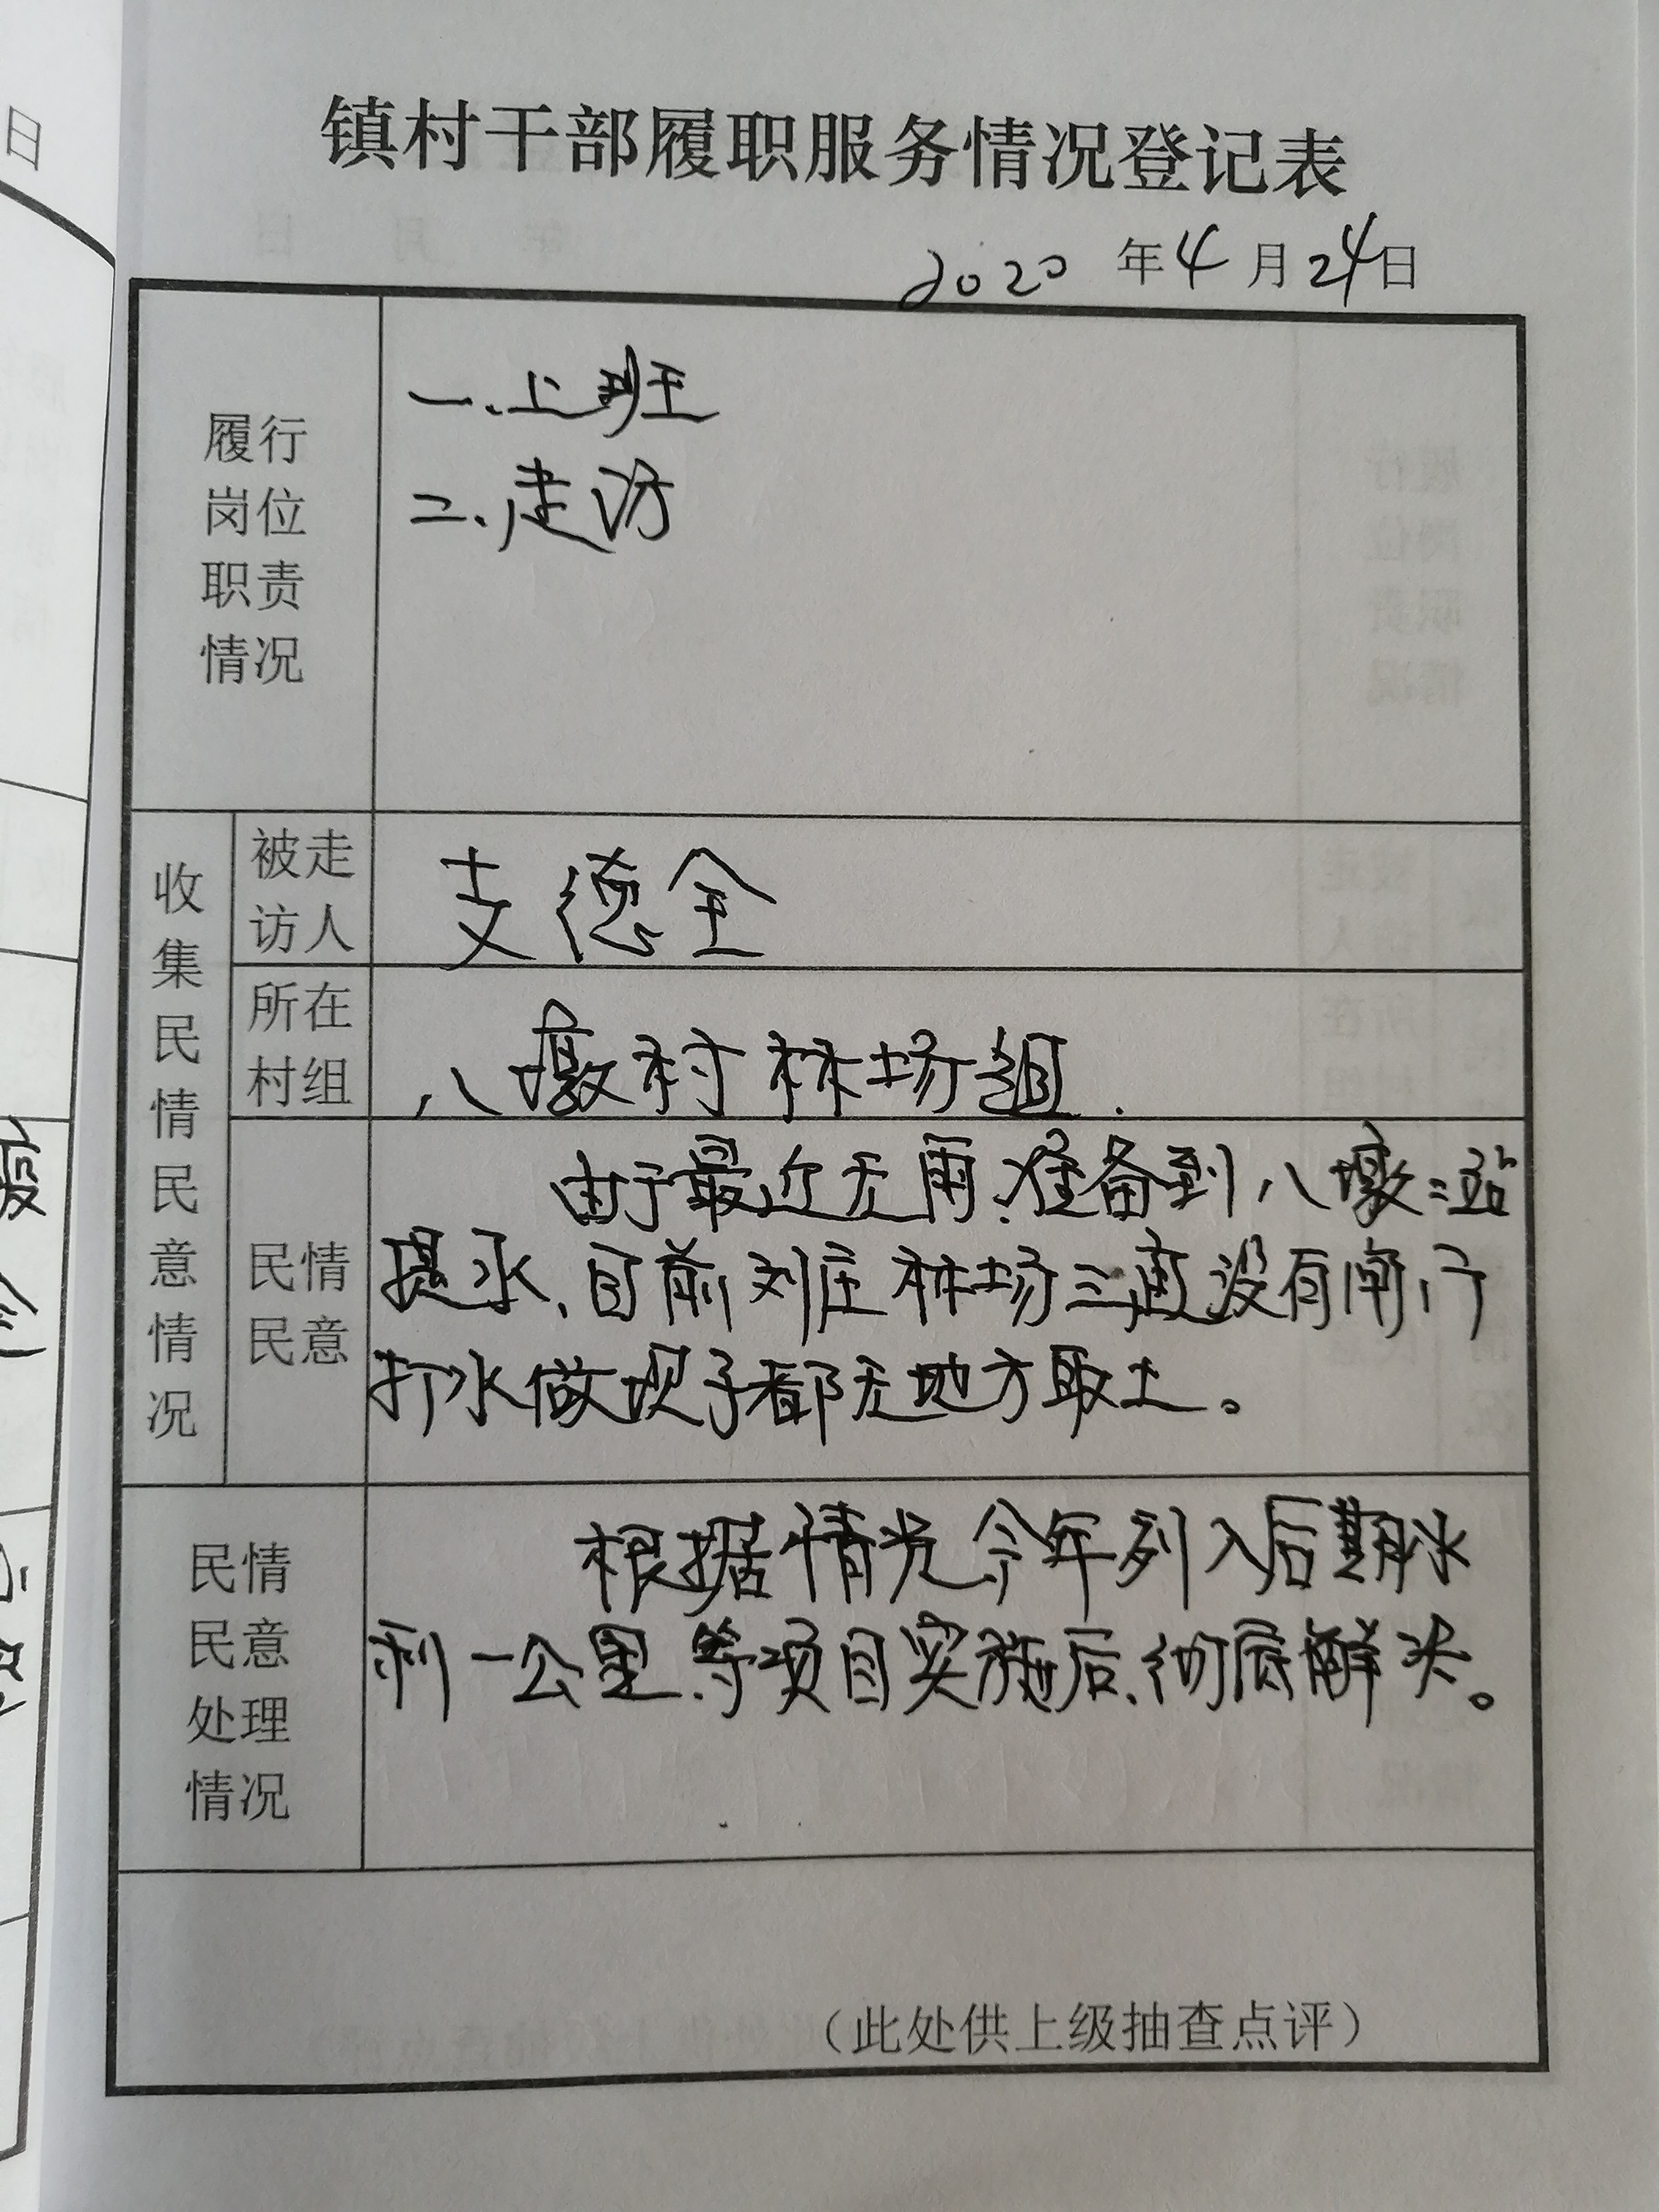 镇村干部履职服务情况登记表
2020年4月24日
履行
岗位
职责
情况
一、上班
二、走访
收集民情民意情况
被走
访人
支德全
所在
村组
八墩村林场组.
民情
民意
由于最近无雨、准备到八墩二站
提水、目前刘庄林场三直没有闸门
打水做坝子都无地方取土。
民情
民意
处理
情况
根据情况今年列入后期水
利一公里、等项目实施后、彻底解决。
（此处供上级抽查点评）
日